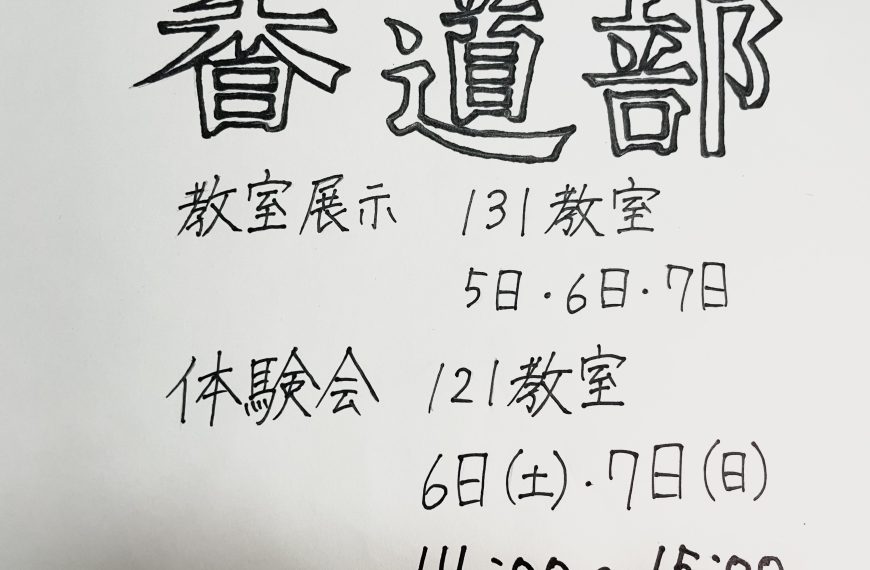 香道部
教室展示 131教室
5日・6日・7日
体験会 121教室
6日(土)・7日(日)
15:00